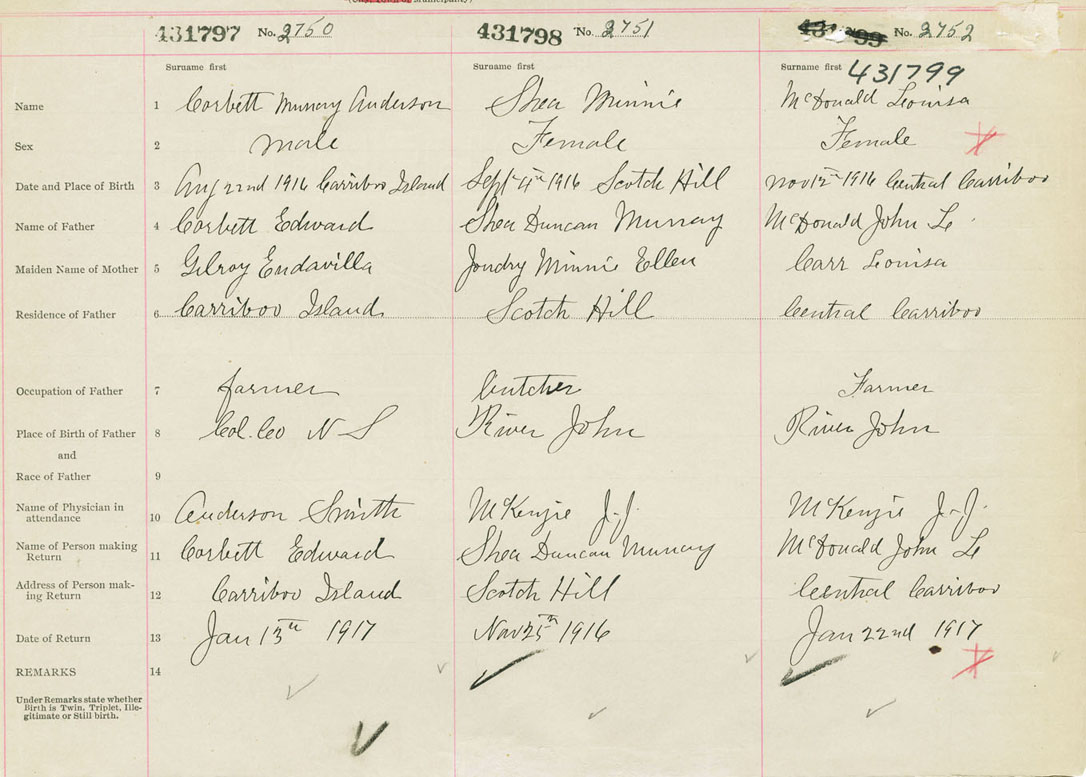 431797 No. 2750 431798 No. 2751 No. 2752
Surname first Surname first Surname first 431799
Name 1 Corbett Murray Anderson Shea Minnie McDonald Louisa
Sex 2 male Female Female
Date and Place of Birth 3 Aug 22nd 1916 Carriboo Island Sept 4th 1916 Scotch Hill Nov 12th 1916 Central Carriboo
Name of Father 4 Corbett Edward Shea Duncan Murray McDonald John Le
Maiden Name of Mother 5 Gilroy Endavilla Jondry Minnie Ellen Carr Louisa
Residence of Father 6 Carriboo Island Scotch Hill Central Carriboo
Occupation of Father 7 farmer butcher Farmer
Place of Birth of Father 8 Col. Co N S River John River John
and
Race of Father 9
Name of Physician in
attendance 10 Anderson Smith McKenzie J. J. McKenzie J. J.
Name of Person making
Return 11 Corbett Edward Shea Duncan Murray McDonald John Le
Address of Person mak-
ing Return 12 Carriboo Island Scotch Hill Central Carriboo
Date of Return 13 Jan 13th 1917 Nov 25th 1916 Jan 22nd 1917
REMARKS 14
Under Remarks state whether
Birth is Twin, Triplet, Ille-
gitimate or Still birth.